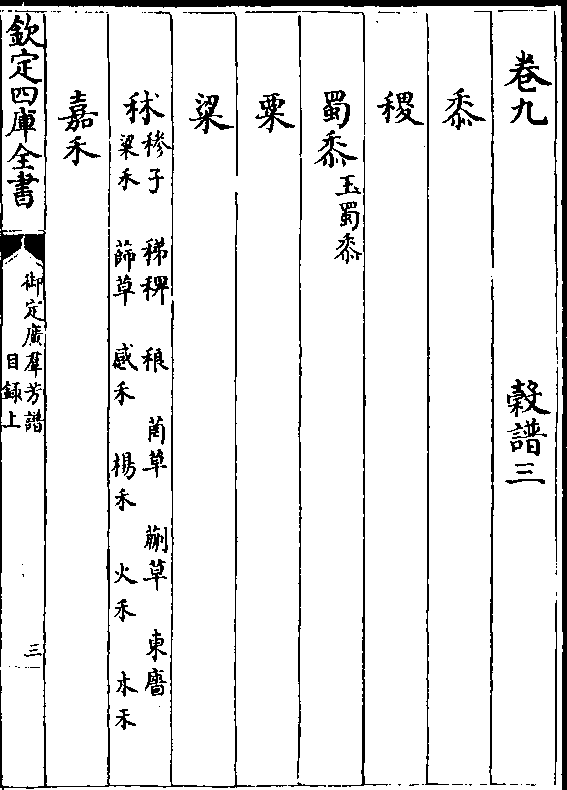 卷九 穀譜三
黍
稷
蜀黍 玉蜀黍
粟
粱
秫 穇子 稊稗 稂 菵草 蒯草 東廧
粱禾 蒒草 感禾 楊禾 火禾 木禾
嘉禾
欽定四庫全書
御定廣羣芳譜
目錄上
三